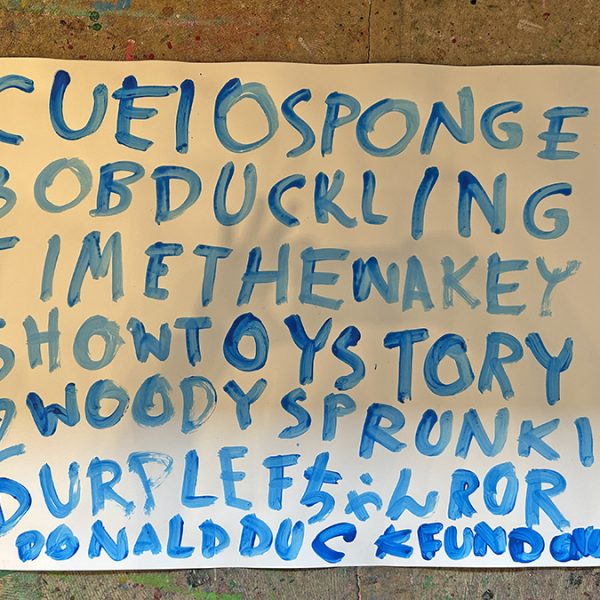 CUEIOSPONGE
BOBDUCKLING
TIMETHEWAKEY
SHOWTOYSTORY
2WOODYSPRUNKI
PURPLEFちゃんROR
DONALDDUCKFUND